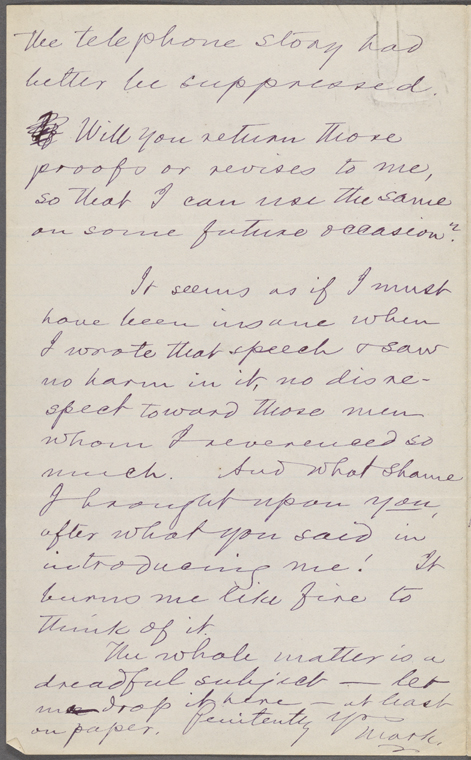 The telephone story had
better be suppressed.
Will you return those
proofs or revises to me,
so that I can use the same
on some future occasion?
It seems as if I must
have been insane when
I wrote that speech & saw
no harm in it, no disre-
spect toward those men
whom I reverenced so
much. And what shame
I brought upon you,
after what you said in
introducing me! It
burns me like fire to
think of it.
The whole matter is a
dreadful subject — let
me drop it here — at least
on paper. Penitently Yrs
Mark.